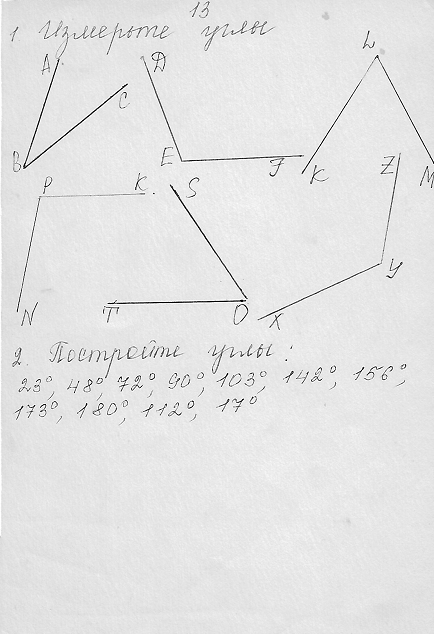 13
1. Измерьте углы
A D L
C
B E F K Z M
P K S
Y
N T O X
2. Постройте углы:
23°, 48°, 72°, 90°, 103°, 142°, 156°,
173°, 180°, 112°, 17°